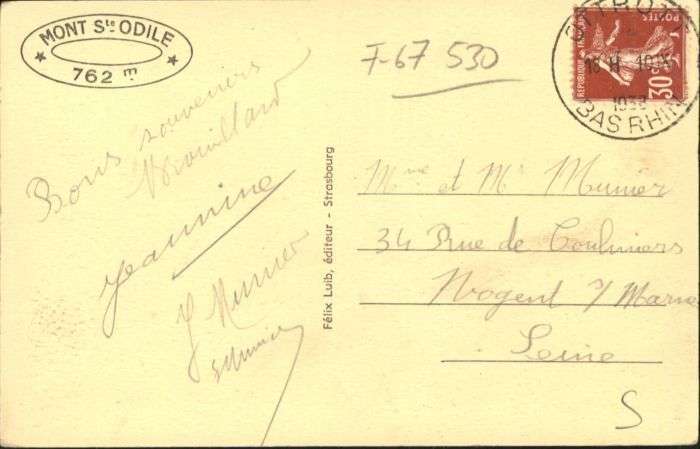 MONT Ste ODILE
762 m
F-67 530
OTTROTT
BAS RHIN
POSTES
REPUBLIQUE FRANÇAISE
30c
Bons souvenirs
Brouillard
Jeannine
J Munier
Félix Luib, éditeur - Strasbourg
Mme et Mr Munier
34 Rue de Coulmiers
Nogent s/ Marne
Seine
S